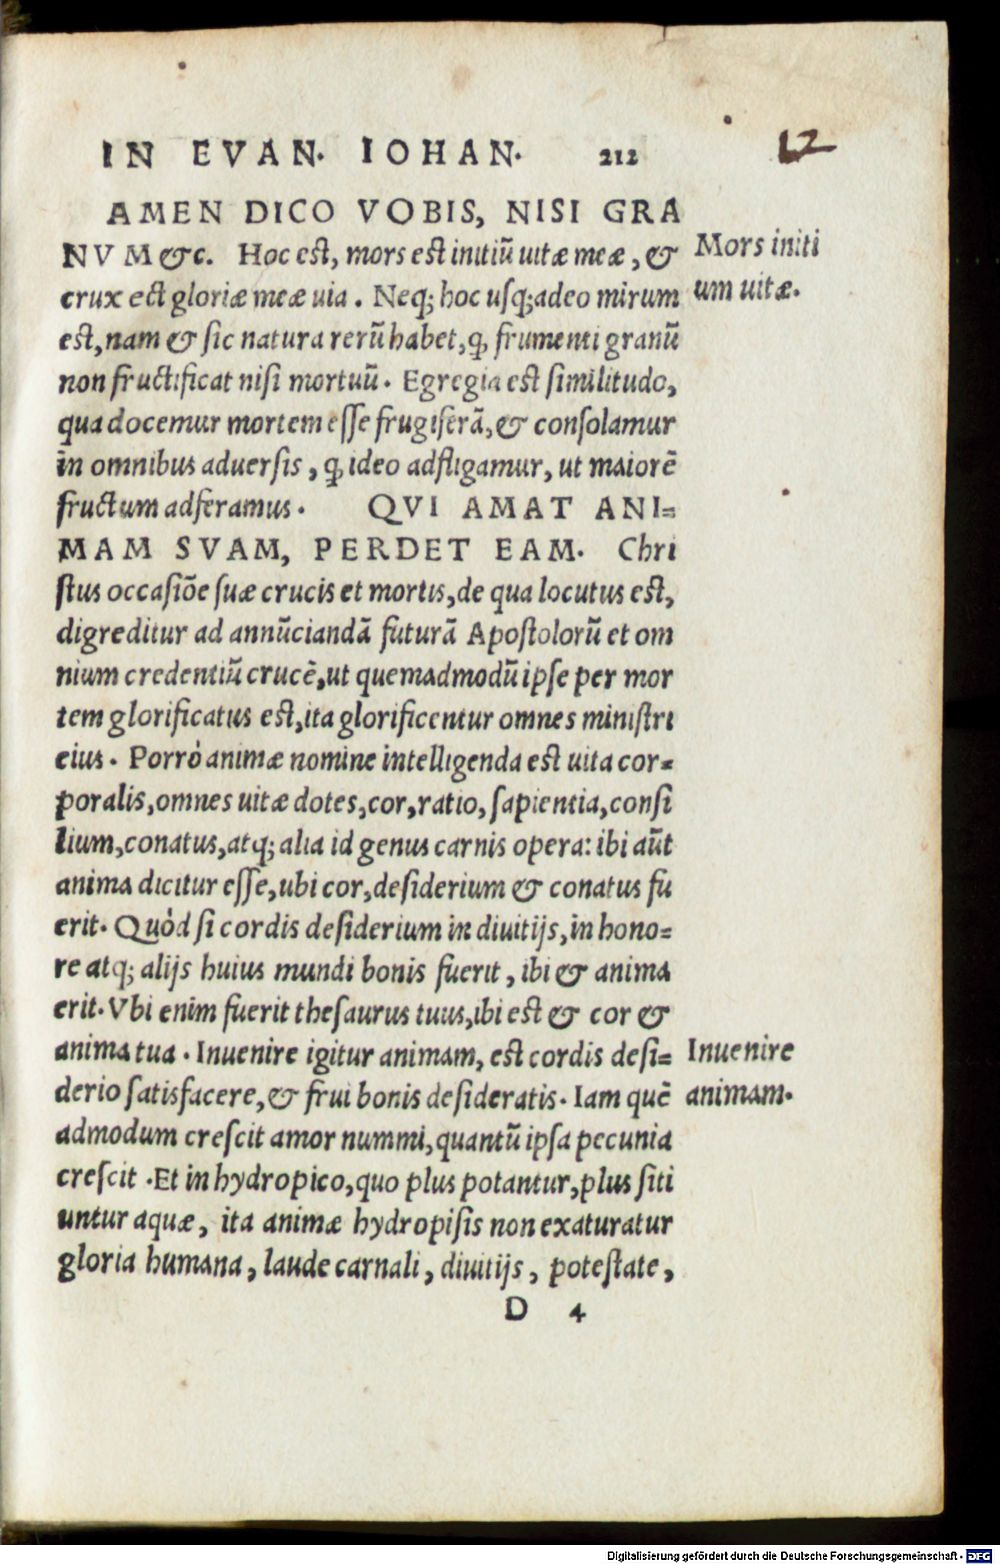 IN EVAN. IOHAN. 212
12
AMEN DICO VOBIS, NISI GRA
NVM &c. Hoc est, mors est initiũ uitæ meæ, &
Mors initi
crux est gloriæ meæ uia. Neq; hoc usq;adeo mirum
um uitæ.
est, nam & sic natura rerũ habet, ꝙ frumenti granũ
non fructificat nisi mortuũ. Egregia est similitudo,
qua docemur mortem esse frugiferã, & consolamur
in omnibus aduersis, ꝙ ideo adfligamur, ut maiorẽ
fructum adferamus. QVI AMAT ANI=
MAM SVAM, PERDET EAM. Chri
stus occasiõe suæ crucis et mortis, de qua locutus est,
digreditur ad annũciandã futurã Apostolorũ et om
nium credentiũ crucẽ, ut quemadmodũ ipse per mor
tem glorificatus est, ita glorificentur omnes ministri
eius. Porrò animæ nomine intelligenda est uita cor=
poralis, omnes uitæ dotes, cor, ratio, sapientia, consi
lium, conatus, atq; alia id genus carnis opera: ibi aũt
anima dicitur esse, ubi cor, desiderium & conatus fu
erit. Quòd si cordis desiderium in diuitijs, in hono=
re atq; alijs huius mundi bonis fuerit, ibi & anima
erit. Vbi enim fuerit thesaurus tuus, ibi est & cor &
anima tua. Inuenire igitur animam, est cordis desi=
Inuenire
derio satisfacere, & frui bonis desideratis. Iam quẽ
animam.
admodum crescit amor nummi, quantũ ipsa pecunia
crescit. Et in hydropico, quo plus potantur, plus siti
untur aquæ, ita animæ hydropisis non exaturatur
gloria humana, laude carnali, diuitijs, potestate,
D 4
Digitalisierung gefördert durch die Deutsche Forschungsgemeinschaft - DFG